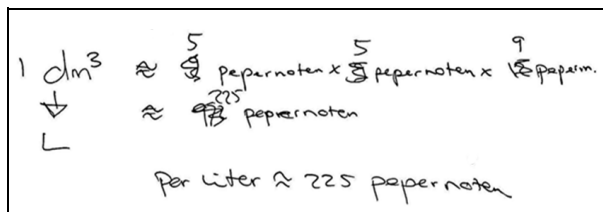 1 dm³ ≈ 5 pepernoten x 5 pepernoten x 9 pepern.
↓ ≈ 225 pepernoten
L
Per liter ≈ 225 pepernoten